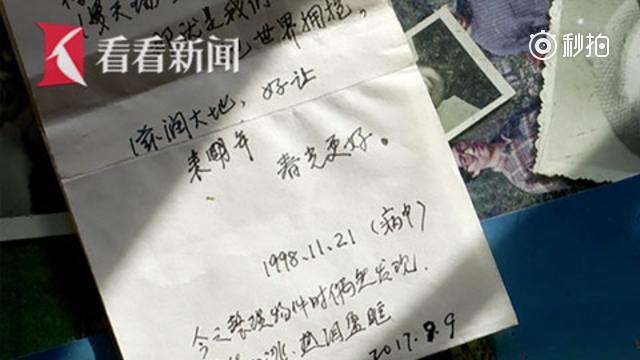 看看新闻
秒拍
就是我们
世界拥抱。
滋润大地，好让
来明年 春光更好。
1998.11.21（病中）
今之整理物件时偶然发现.
热泪盈眶
2017.8.9